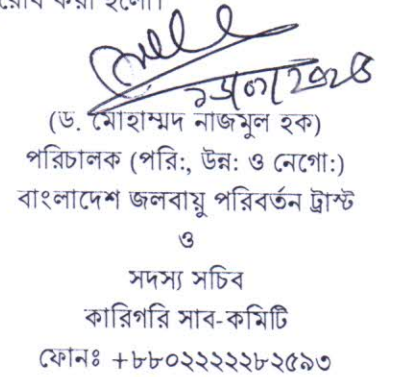 (ড. মোহাম্মদ নাজমুল হক)
পরিচালক (পরি:, উন্ন: ও নেগো:)
বাংলাদেশ জলবায়ু পরিবর্তন ট্রাস্ট
ও
সদস্য সচিব
কারিগরি সাব-কমিটি
ফোনঃ +৮৮০২২২২২৮২৫৯৩